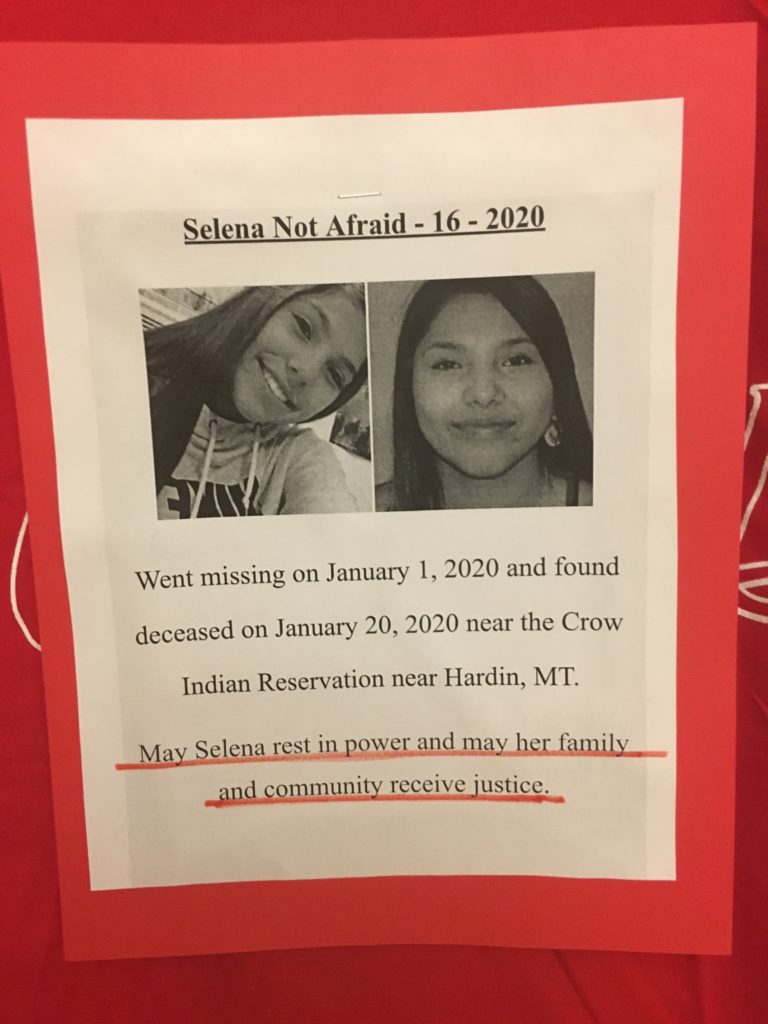 Selena Not Afraid - 16 - 2020
Went missing on January 1, 2020 and found
deceased on January 20, 2020 near the Crow
Indian Reservation near Hardin, MT.
May Selena rest in power and may her family
and community receive justice.